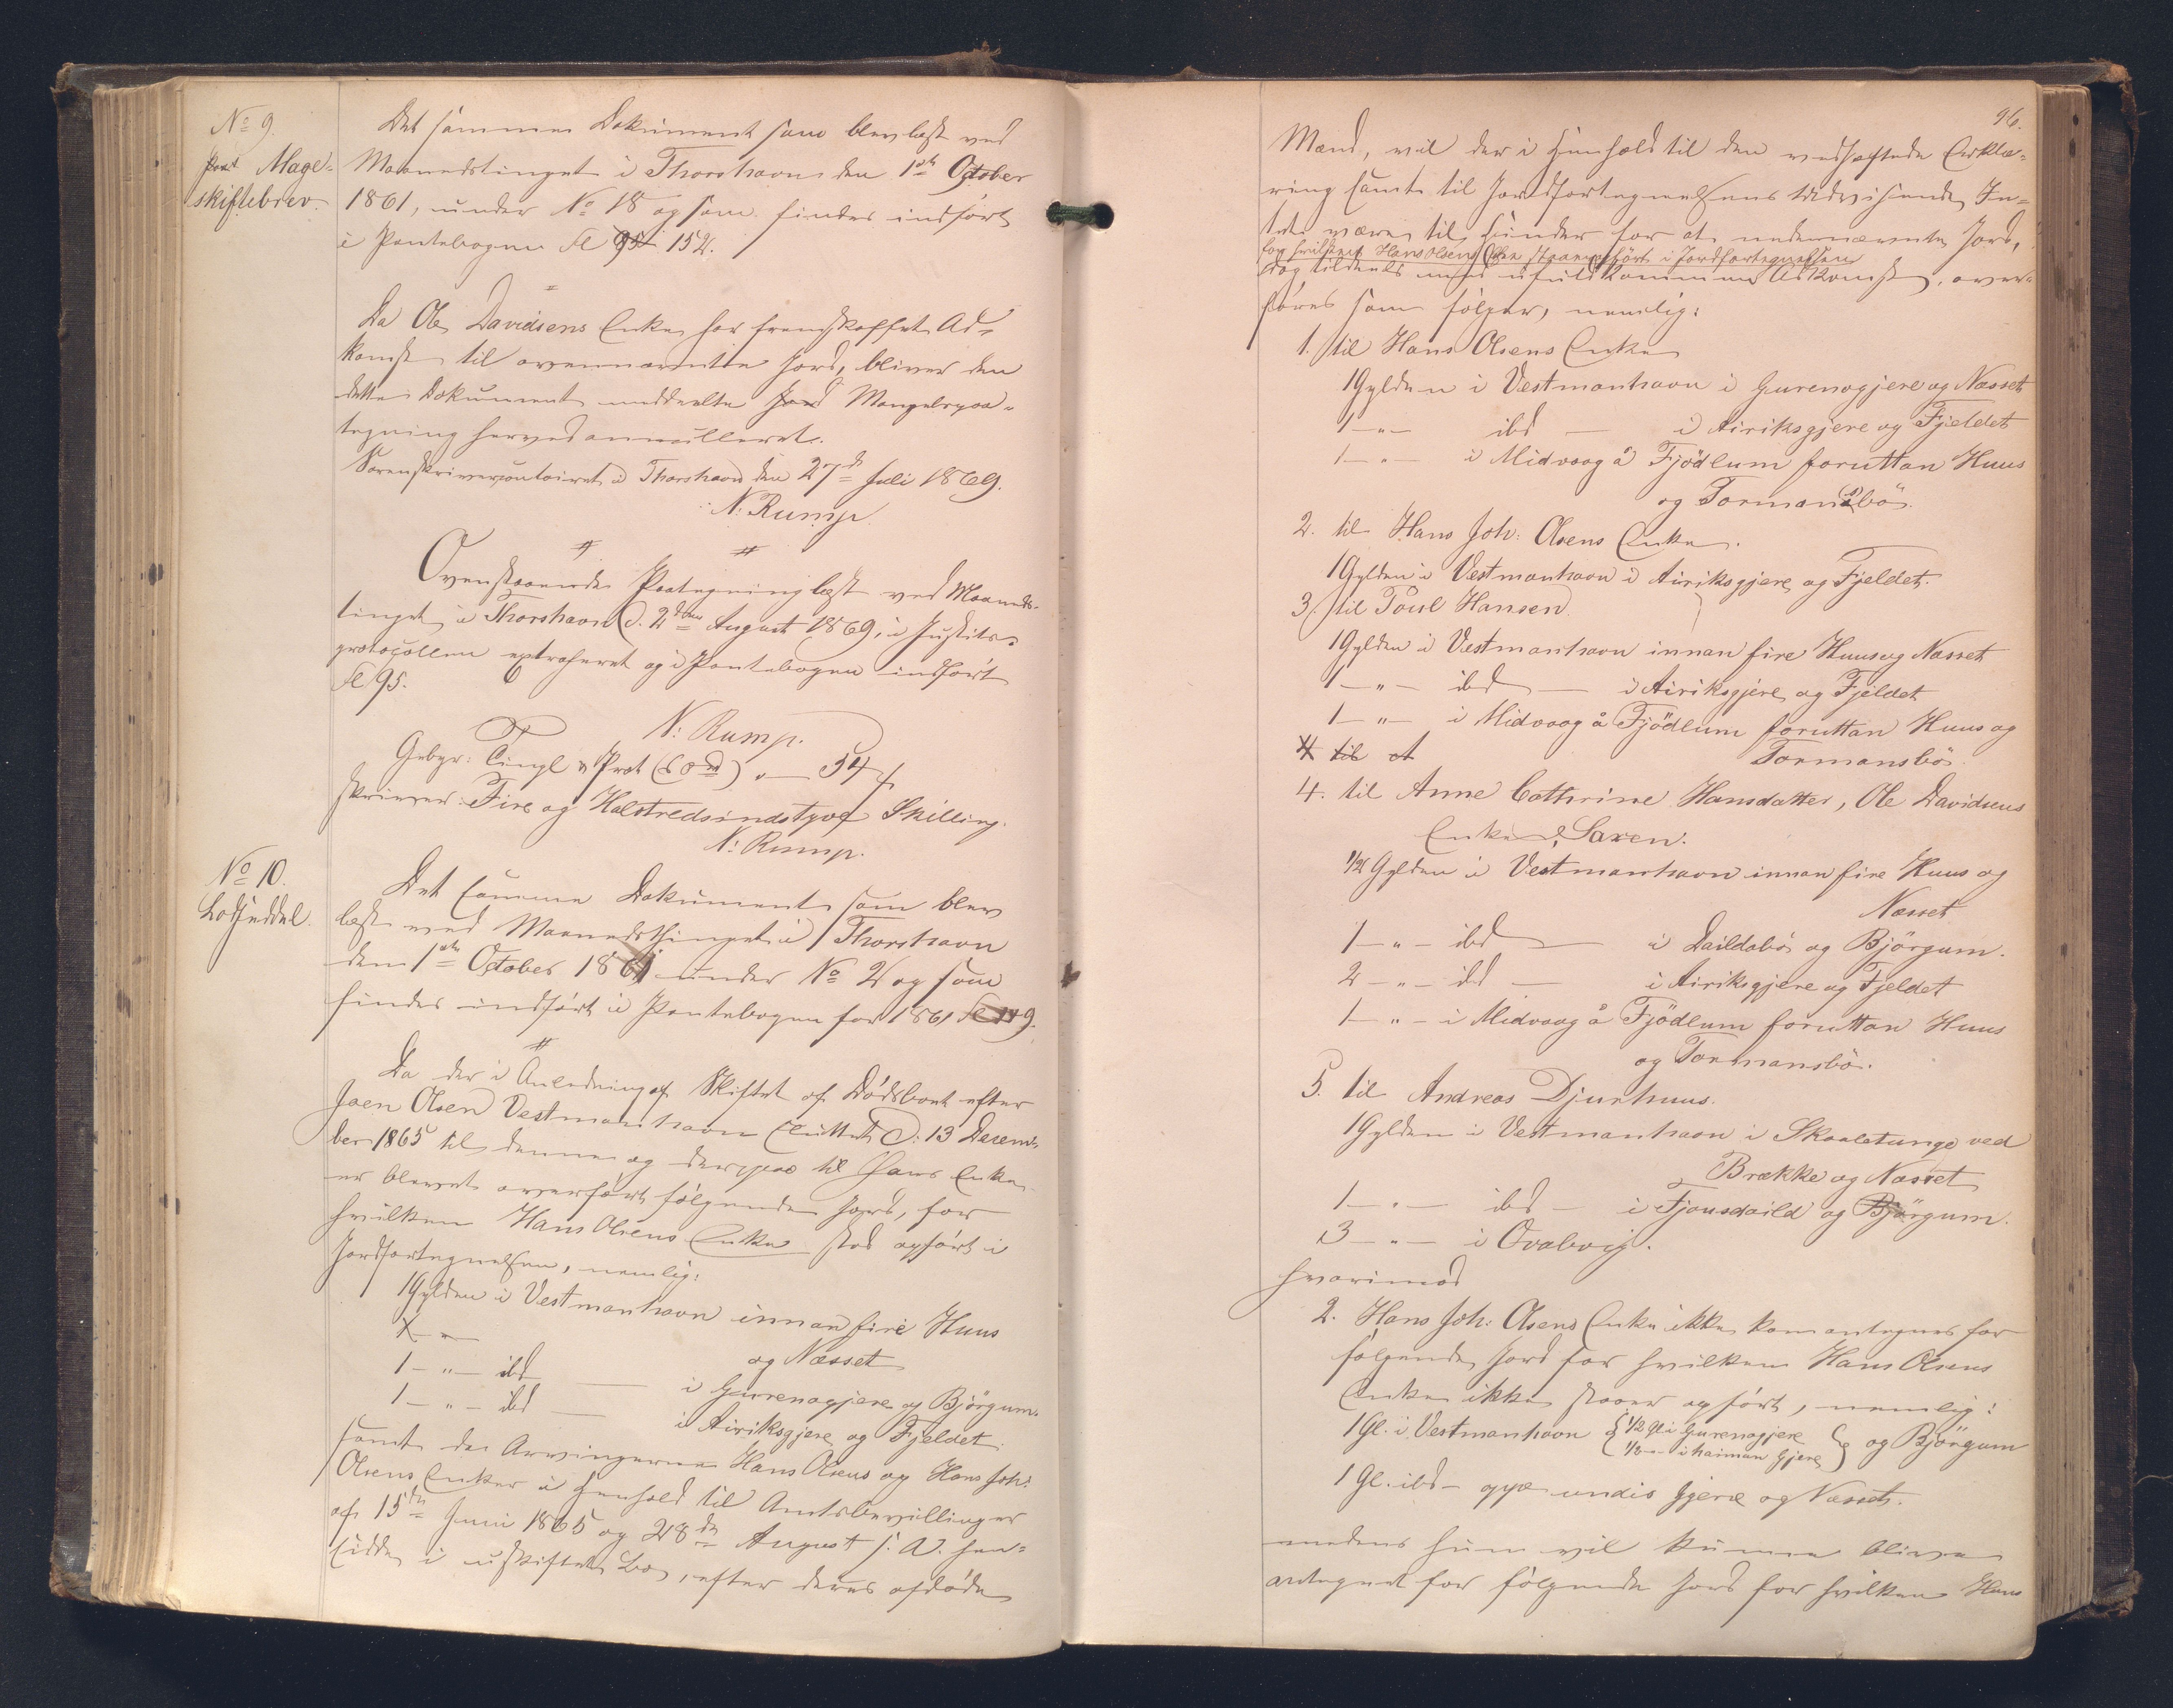 No 9.
Mage-
skiftebrev.
Det samme Dokument som blev læst ved
Maanedstinget i Thorshavn den 1ste October
1861, under No 18 og som findes indført
i Pantebogen Fol 95 152.
Da Ole Davidsens Enke har fremskaffet Ad-
komst til ovennævnte Jord, bliver den
dette Dokument meddeelte Jord Mangelspaa-
tegning herved annulleret.
Sorenskrivercontoiret i Thorshavn den 27de Juli 1869.
N: Rump.
Ovenstaaende Paategning læst ved Maaneds-
tinget i Thorshavn d. 2den August 1869, i Justits-
protocollen extraheret og i Pantebogen indført
Fol 95.
N: Rump.
Gebyr: Tingl & Prot 54 f
skriver: Fire og Halvtredsindstyve Skilling.
N: Rump.
No 10.
Lodseddel.
Det samme Dokument som blev
læst ved Maanedsthinget i Thorshavn
den 1ste October 1861 under No 2 og som
findes indført i Pantebogen for 1861 Fol 149.
Da der i Anledning af Skiftet af Dødsboet efter
Joen Olsen Vestmanhavn sluttet d: 13 Decem-
ber 1865 til denne og derpaa til hans Enke
er blevet overført følgende Jord, for
hvilken Hans Olsens Enke stod opført i
Jordfortegnelsen, nemlig:
1 Gylden i Vestmanhavn innan fire Huus
og Næsset
1 - " - ibd - i Gurenagjere og Björgum.
1 - " - ibd - i Airiksgjere og Fjeldet.
samt da Arvingerne Hans Olsens og Hans Joh:
Olsens Enker i Henhold til Amtsbevillinger
af 15de Juni 1865 og 28de August s. A. hen-
sidde i uskiftet Bo, efter deres afdøde
96.
Mænd, vil der i Henhold til den vedhæftede Erklæ-
ring samt til Jordfortegnelsens Udvisende In-
tet være til Hinder for at nedennævnte Jord,
for hvilken Hans Olsens Enke staar opført i Jordfortegnelsen
dog tildeels med ufuldkommen Adkomst, over-
føres som følger, nemlig:
1. til Hans Olsens Enke
1 Gylden i Vestmanhavn i Gurenagjere og Næsset
1 - " - ibd - i Airiksgjere og Fjeldet
1 - " - i Midvaag å Fjödlum foruttan Huus
og Tormansbö.
2. til Hans Joh: Olsens Enke.
1 Gylden i Vestmanhavn i Airiksgjere og Fjeldet.
3. til Poul Hansen
1 Gylden i Vestmanhavn innan fire Huus og Næsset
1 - " - ibd - i Airiksgjere og Fjeldet
1 - " - i Midvaag å Fjödlum foruttan Huus og
4 til
Tormansbö.
4. til Anne Cathrine Hansdatter, Ole Davidsens
Enke, Saxen.
1/2 Gylden i Vestmanhavn innan fire Huus og
Næsset
1 - " - ibd - i Daildabö og Björgum.
2 - " - ibd - i Airiksgjere og Fjeldet
1 - " - i Midvaag å Fjödlum foruttan Huus
og Tormansbö.
5. til Andreas Djurhuus.
1 Gylden i Vestmanhavn i Skaaletunge ved
Brække og Næsset
1 - " - ibd - i Fjousdaild og Björgum.
3 - " - i Qvalvig.
hvorimod
2. Hans Joh: Olsens Enke ikke kan antegnes for
følgende Jord for hvilken Hans Olsens
Enke ikke staaer opført, nemlig:
1 Gl. i Vestmanhavn { 1/2 Gl i Gurenagjere
1/2 - i haiman Gjere } og Björgum
1 Gl. ibd - undir Gjere og Næsset.
medens hun vil kunne blive
antegnet for følgende Jord for hvilken Hans